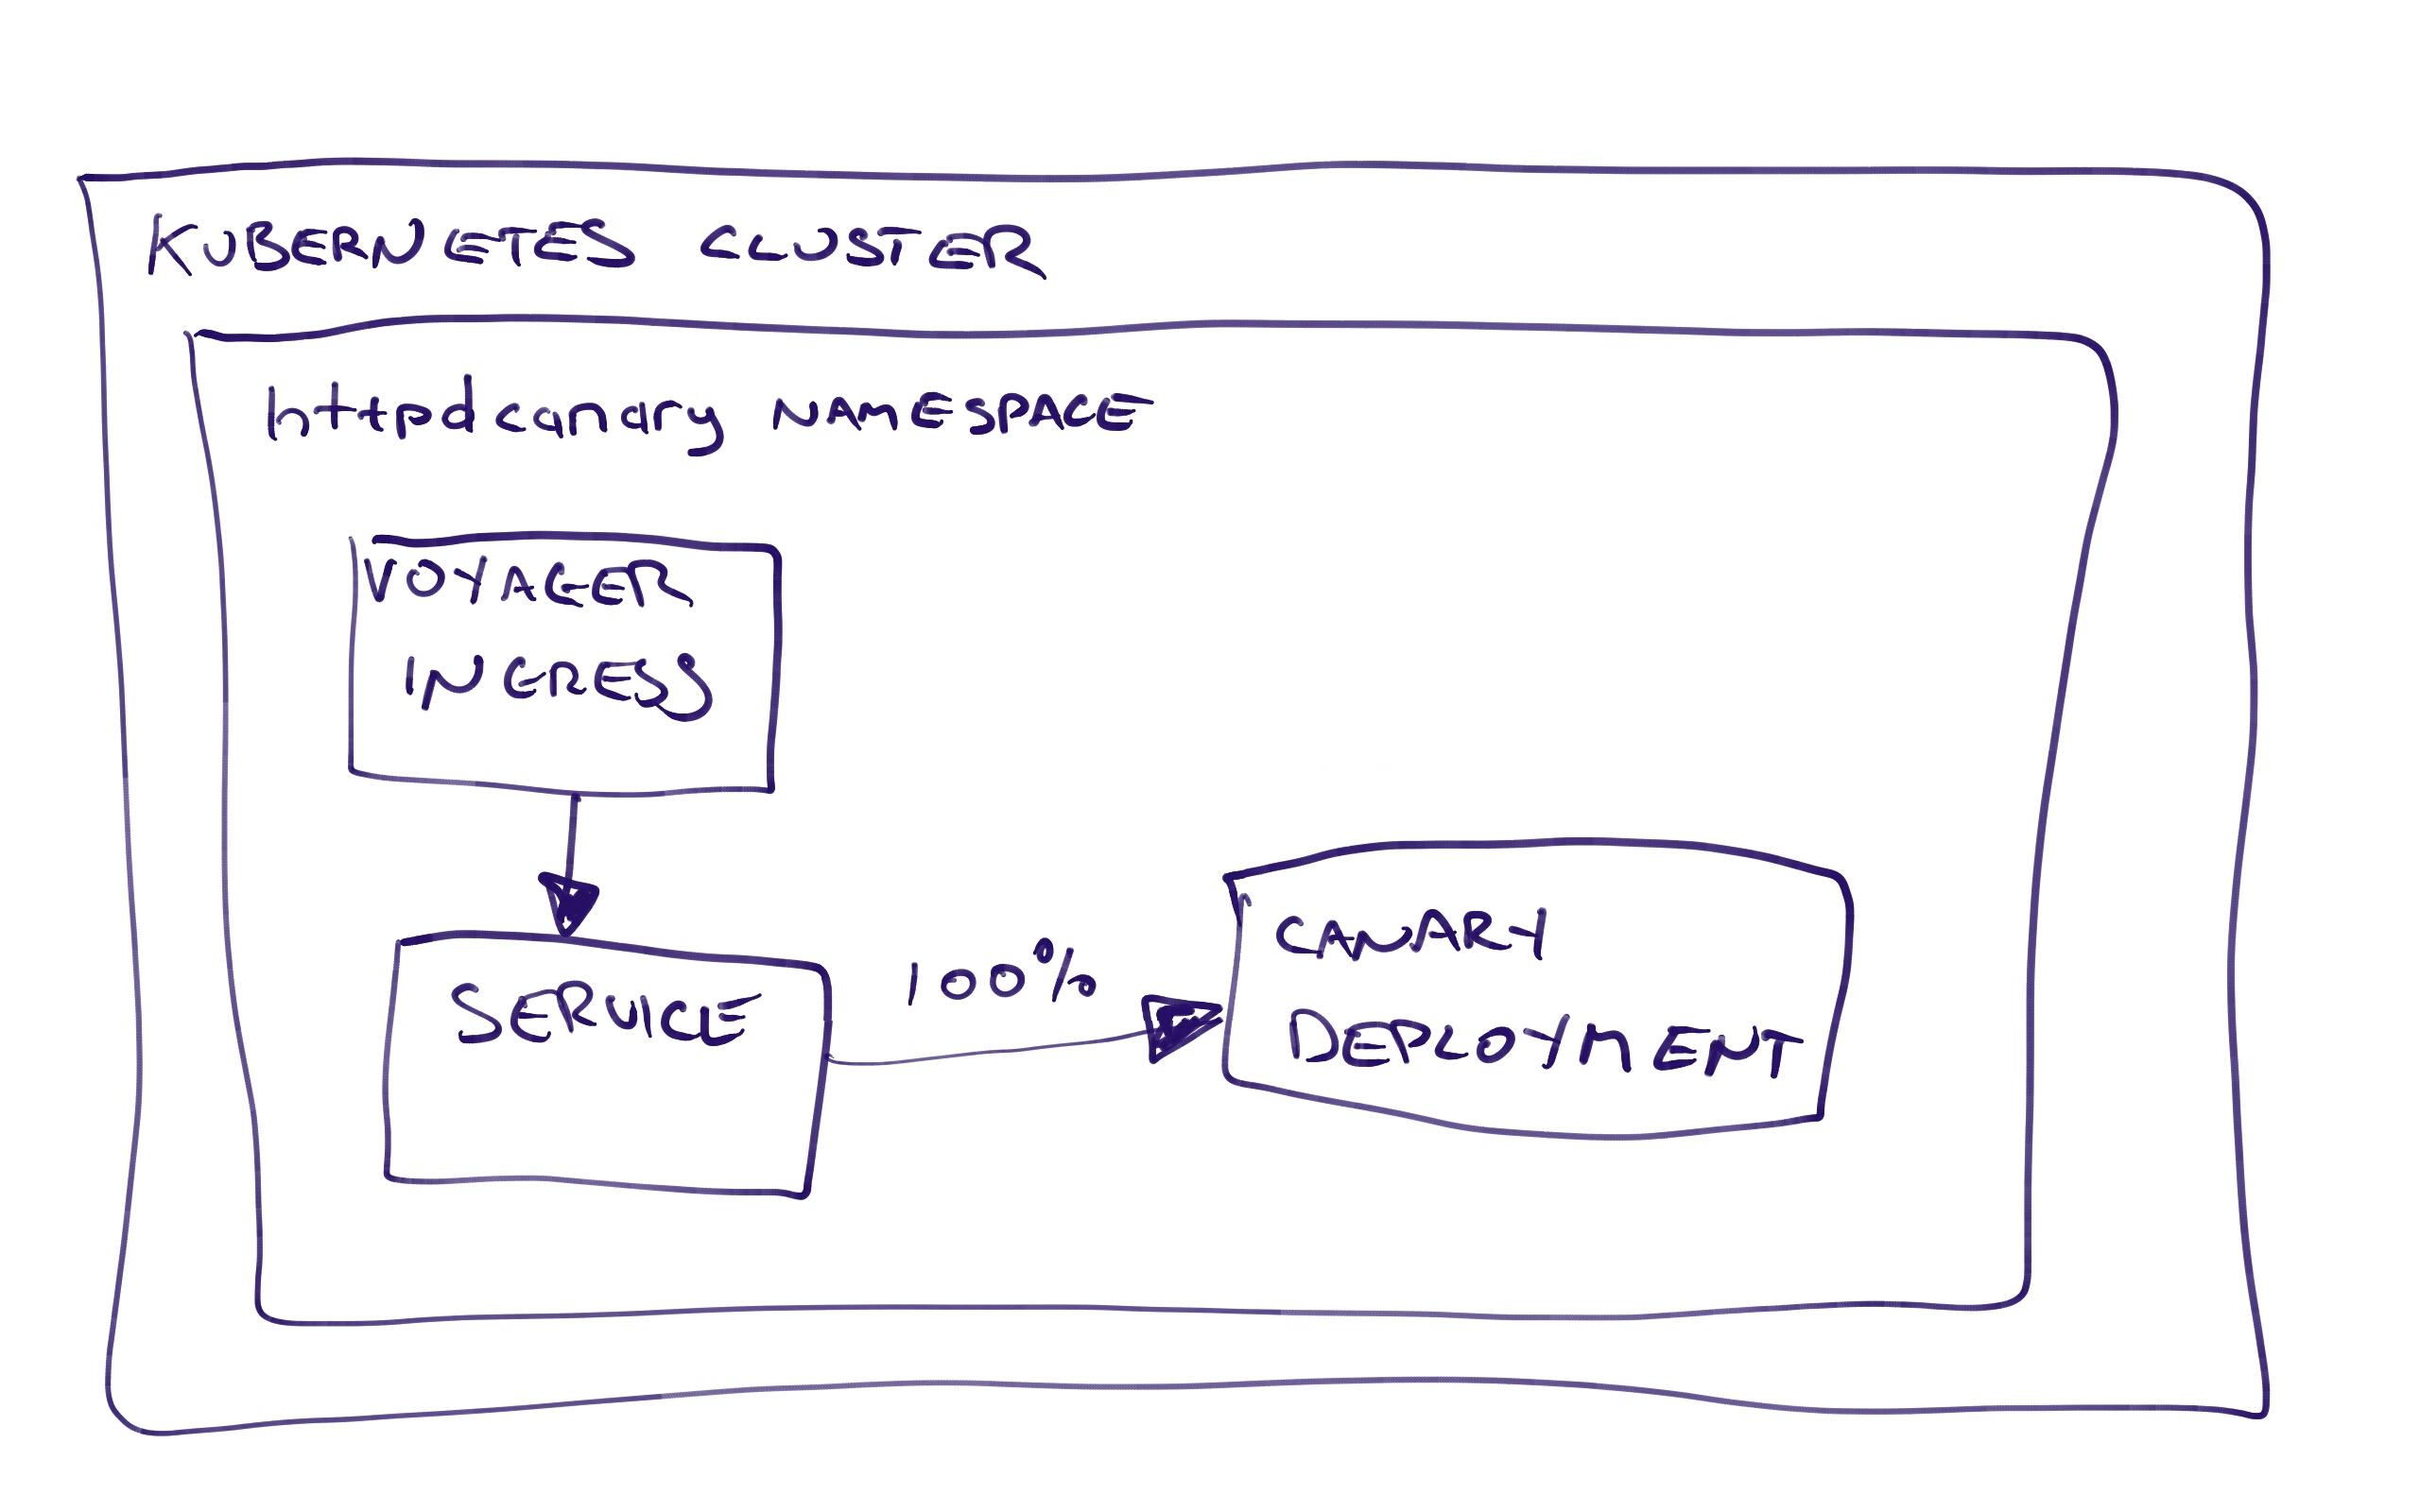 KUBERNETES CLUSTER
httpdcanary NAMESPACE
VOYAGER
INGRESS
SERVICE
100%
CANARY
DEPLOYMENT